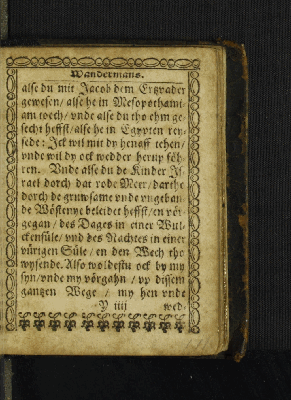 Wandermans.
alse du mit Jacob dem Ertzvader
gewesen / alse he in Mesopothami-
am toech / vnde alse du tho ehm ge-
secht heffst / alse he in Egypten rey-
sede: Ick wil mit dy henaff tehen /
vnde wil dy ock wedder herup föh-
ren. Vnde alse du de Kinder Js-
rael dorch dat rode Meer / dar the
dorch de gruwsame vnde vngebau-
de Wöstenye beleidet heffst / en vör
gegan / des Dages in einer Wul-
ckensüle / vnd des Nachtes in einer
vürigen Süle / en den Wech tho
wysende. Also woldestu ock by my
syn / vnde my vörgahn / vp dissem
gantzen Wege / my hen vnde
Y iiij wed-